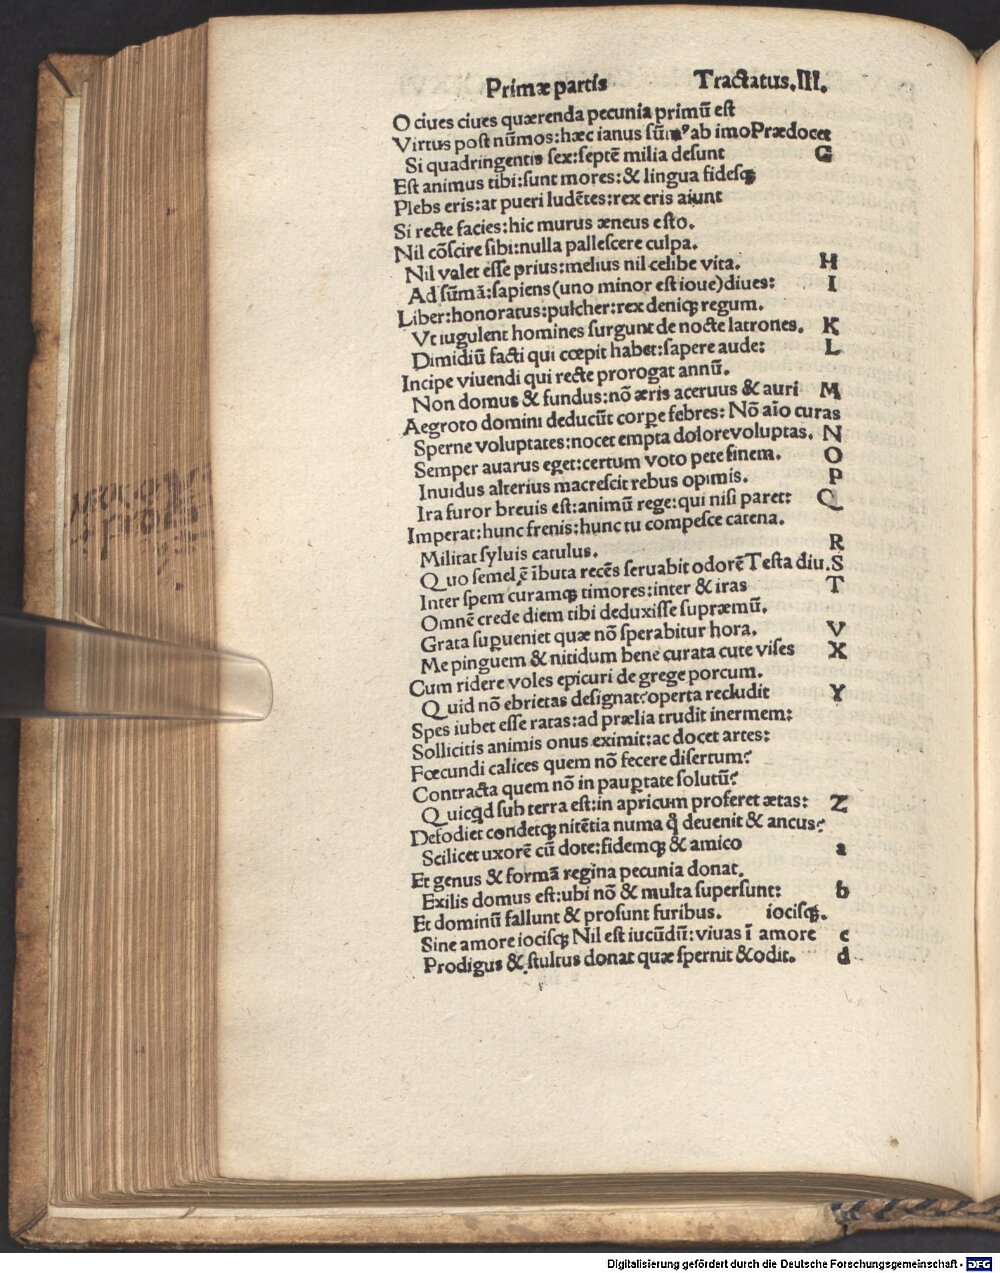 Primæ partis Tractatus.III.
O ciues ciues quærenda pecunia primū est
Virtus post nūmos:hæc ianus sūmꝰ ab imo Prædocet
Si quadringentis sex:septē milia desunt G
Est animus tibi:sunt mores:& lingua fidesqꝫ
Plebs eris:at pueri ludētes:rex eris aiunt
Si recte facies:hic murus æneus esto.
Nil cōscire sibi:nulla pallescere culpa.
Nil valet esse prius:melius nil celibe vita. H
Ad sūmā:sapiens(uno minor est ioue)diues: I
Liber:honoratus:pulcher:rex deniqꝫ regum.
Vt iugulent homines surgunt de nocte latrones. K
Dimidiū facti qui cœpit habet:sapere aude: L
Incipe viuendi qui recte prorogat annū.
Non domus & fundus:nō æris aceruus & auri M
Aegroto domini deducūt corpꝑe febres: Nō aīo curas
Sperne voluptates:nocet empta dolore voluptas. N
Semper auarus eget:certum voto pete finem. O
Inuidus alterius macrescit rebus opimis. P
Ira furor breuis est:animū rege:qui nisi paret: Q
Imperat:hunc frenis:hunc tu compesce catena.
Militat syluis catulus. R
Quo semel ē ībuta recēs seruabit odorē Testa diu. S
Inter spem curamqꝫ timores:inter & iras T
Omnē crede diem tibi deduxisse supræmū.
Grata suꝑueniet quæ nō sperabitur hora. V
Me pinguem & nitidum bene curata cute vises X
Cum ridere voles epicuri de grege porcum.
Quid nō ebrietas designat:operta recludit Y
Spes iubet esse ratas:ad prælia trudit inermem:
Sollicitis animis onus eximit:ac docet artes:
Fœcundi calices quem nō fecere disertum?
Contracta quem nō in pauꝑtate solutū?
Quicqd sub terra est:in apricum proferet ætas: Z
Defodiet condetqꝫ nitētia numa q̄ deuenit & ancus?
Scilicet uxorē cū dote:fidemqꝫ & amico a
Et genus & formā regina pecunia donat.
Exilis domus est:ubi nō & multa supersunt: b
Et dominū fallunt & prosunt furibus. iocisqꝫ.
Sine amore iocisqꝫ Nil est iucūdū:viuas ī amore c
Prodigus & stultus donat quæ spernit & odit. d
Digitalisierung gefördert durch die Deutsche Forschungsgemeinschaft - DFG